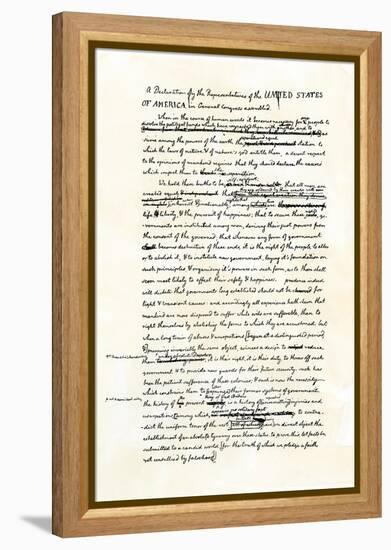 A Declaration by the Representatives of the UNITED STATES
OF AMERICA, in General Congress assembled.
When in the course of human events it becomes necessary for people to
dissolve the political bands which have connected them with another, and to
assume among the powers of the earth the equal station to
which the laws of nature & of nature's god entitle them, a decent respect
to the opinions of mankind requires that they should declare the causes
which impel them to the separation.
We hold these truths to be self-evident that all men are
created equal
life & liberty, & the pursuit of happiness; that to secure these rights, go-
vernments are instituted among men, deriving their just powers from
the consent of the governed; that whenever any form of government
becomes destructive of these ends, it is the right of the people to alter
or to abolish it, & to institute new government, laying it's foundation on
such principles & organising it's powers in such form, as to them shall
seem most likely to effect their safety & happiness. prudence indeed
will dictate that governments long established should not be changed for
light & transient causes: and accordingly all experience hath shewn that
mankind are more disposed to suffer while evils are sufferable, than to
right themselves by abolishing the forms to which they are accustomed. but
when a long train of abuses & usurpations [begun at a distinguished period,
& pursuing invariably the same object, evinces a design to reduce
them it is their right, it is their duty, to throw off such
government & to provide new guards for their future security. such has
been the patient sufferance of these colonies; & such is now the necessity
which constrains them to [expunge] their former systems of government.
the history of present is a history of injuries and
usurpations [among which, to contra-
dict the uniform tenor of the rest in direct object the
establishment of an absolute tyranny over these states. to prove this let facts be
submitted to a candid world [for the truth of which we pledge a faith
yet unsullied by falsehood]